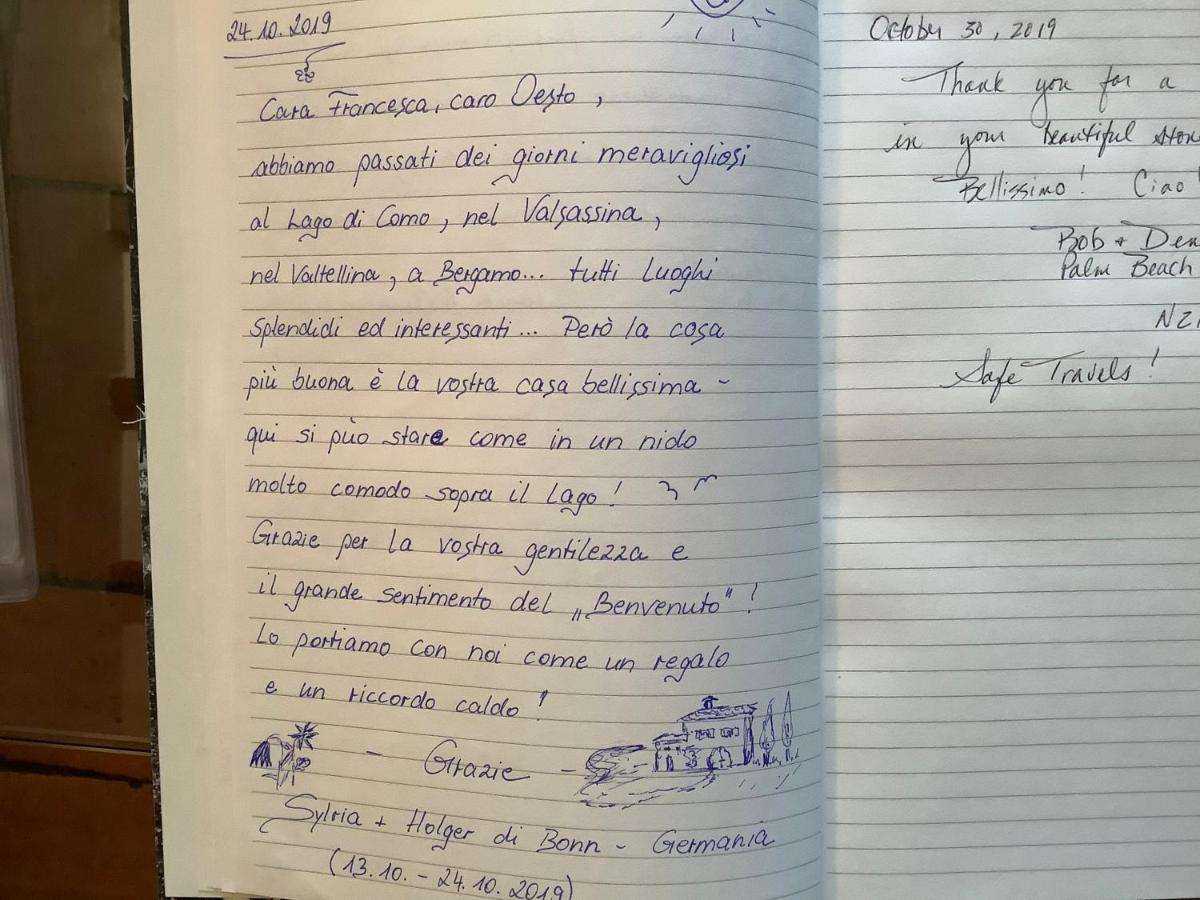 24.10.2019
Cara Francesca, caro Oesto,
abbiamo passati dei giorni meravigliosi
al Lago di Como, nel Valsassina,
nel Valtellina, a Bergamo... tutti Luoghi
splendidi ed interessanti... Però la cosa
più buona è la vostra casa bellissima -
qui si può stare come in un nido
molto comodo sopra il Lago!
Grazie per la vostra gentilezza e
il grande sentimento del „Benvenuto“!
Lo portiamo con noi come un regalo
e un riccordo caldo!
- Grazie -
Sylvia + Holger di Bonn - Germania
(13.10. - 24.10.2019)
October 30, 2019
Thank you for a
in your beautiful
Bellissimo! Ciao!
Bob +
Palm Beach
Safe Travels!